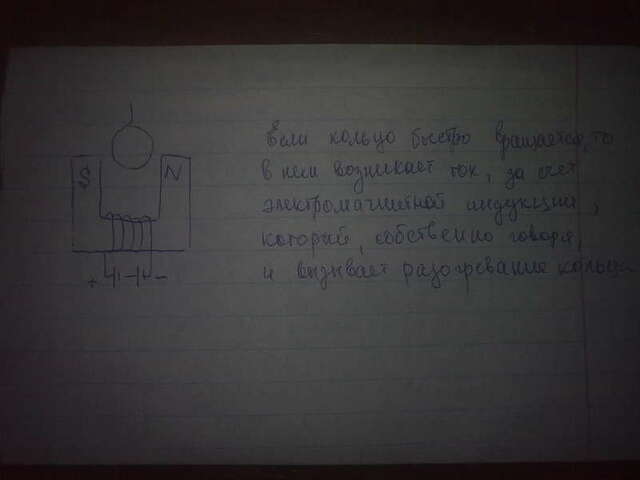 Если кольцо быстро вращается, то
в нем возникает ток, за счет
электромагнитной индукции,
который, собственно говоря,
и вызывает разогревание кольца
S N
+ - -